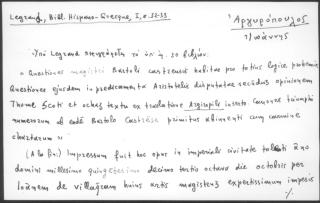 Legrand, Bibl. Hispano-Grecque, I, σ. 32-33
Ἀργυρόπουλος
Ἰωάννης
Ὑπὸ Legrand περιγράφεται τὸ ὑπ' ἀρ. 20 βιβλίον.
« Questiones magistri Bastoli castrensis habitae pro totius logice prohemio
Questiones ejusdem in predicamenta Aristotelis disputatae secundus opinionem
Thome Scoti et ochaz textu ex traslatione Argiropili inserto. Canones triumphi
numerorum ab eodē Bastolo Castrēse primitus alimenti cum carmine
chartarum »
(A la fin:) Impressum fuit hoc opus in imperiali civitate toleti āno
domini millesimo quingētesimo decimo tertio octavo die octobris per
Ioānem de villaqram huius artis magistrū expertissimum impesis
./.